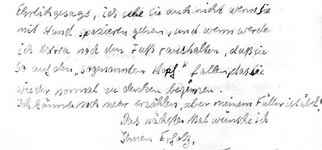 Ehrlich gesagt, ich sehe Sie auch nicht wenn Sie
mit Hund spazieren gehen, und wenn werde
ich Extra noch den Fuß raushalten, daß sie
so auf den "sogenannten Kopf" fallen, das sie
wieder normal zu denken beginnen.
Ich könnte noch mehr erzählen, aber meinem Füller ist übel!
Das nächste Mal wünsche ich
Ihnen Erfolg,